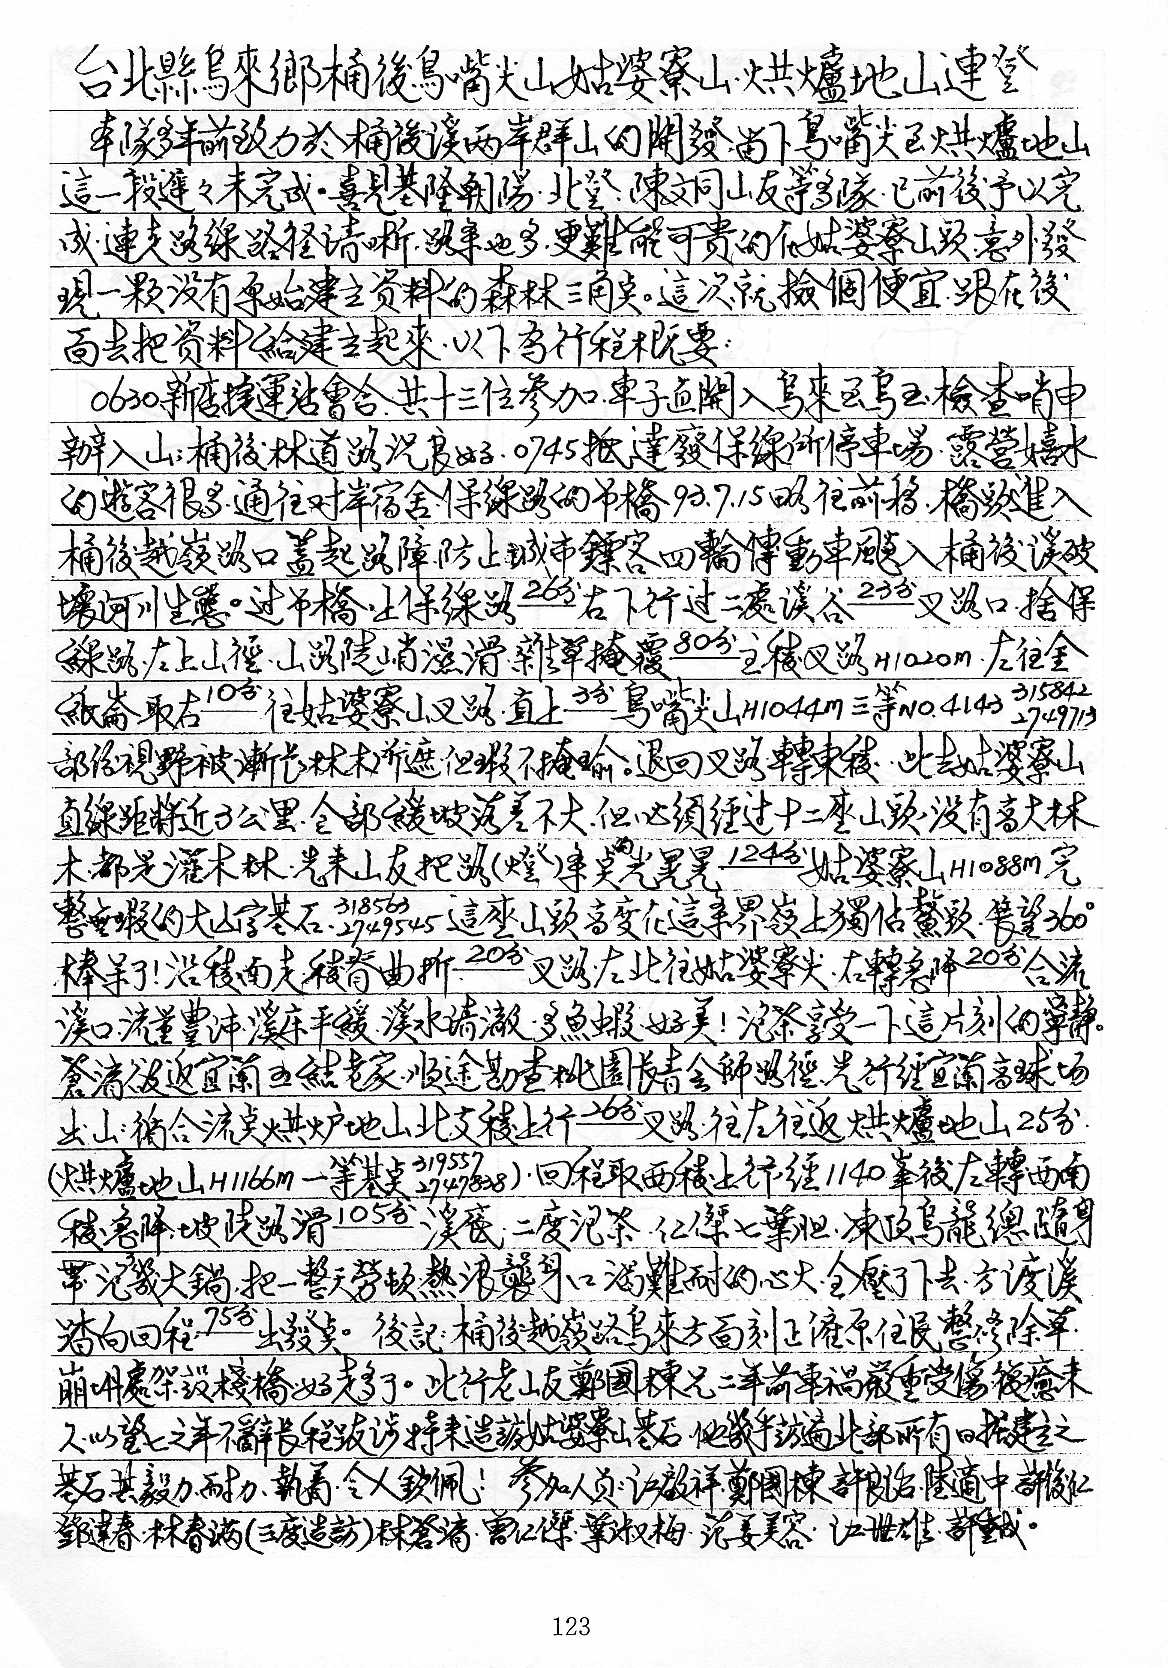 台北縣烏來鄉桶後烏嘴尖山姑婆寮山.烘爐地山連登
本隊多年前致力於桶後溪兩岸群山的開發.留下烏嘴尖至烘爐地山
這一段遲々未完成。喜見基隆朝陽.北登.陳文同山友等多隊.已前後予以完
成.連走路線路徑清晰.路條也多.更難能可貴的在姑婆寮山頭意外發
現一顆没有原始建立資料的森林三角点。這次就撿個便宜.跟在後
面去把資料給建立起來.以下為行程概要:
0630新店捷運站會合.共十三位參加.車子直開入烏來至烏玉檢查哨申
辦入山:桶後林道路況良好.0745抵達發保線所停車場.露營嬉水
的遊客很多.通往对岸宿舍.保線路的吊橋93.7.15略往前移.橋頭進入
桶後越嶺路口蓋起路障.防止城市鏢客四輪傳動車飈入桶後溪破
壞河川生態。过吊橋.上保線路26分右下行过二處溪谷23分叉路口.捨保
線路左上山徑.山路陡峭濕滑.雜草掩覆80分主稜叉路H1020m.左往金
紙崙.取右10分往姑婆寮山叉路.直上3分烏嘴尖山H1044m三等NO.4143 315842 2749713
部份視野被漸長林木所遮但瑕不掩瑜。退回叉路轉東稜.此去姑婆寮山
直線距將近3公里.全部緩坡落差不大.但必須經过十二座山頭.没有高大林
木.都是灌木林.先來山友把路(燈)條莫的光晃晃124分姑婆寮山H1088m完
整無瑕的大山字基石.318563 2749545這座山頭高度在這条界嶺上獨佔鰲頭.展望360°
棒呆了!沿稜南走.稜脊曲折.20分叉路.左北往姑婆寮尖.右轉急降20分合流
溪口.流量豐沛.溪床平緩.溪水清澈.多魚蝦.好美!泡茶享受一下這片刻的寧靜。
蒼濤欲返宜蘭五結老家.順途勘查桃園長青會師路徑.先行經宜蘭高球場
出山:循合流点烘炉地山北支稜上行26分叉路.往左往返烘爐地山25分.
(烘爐地山H1166m一等基点319557 2747838).回程取西稜上行.經1140峯後左轉西南
稜急降.坡陡路滑105分溪底.二度泡茶.仁傑七葉胆.凍頂烏龍總隨身
帶.泡幾大鍋.把一整天勞頓熱浪襲身口渴難耐的心火.全壓了下去.方渡溪
踏向回程.75分出發点。後記:桶後越嶺路烏來方面刻正僱原住民整修除草.
崩坍處架設棧橋.好走多了。此行老山友鄭國棟兄二年前車禍嚴重受傷後癒未
久.以望七之年不辭長程跋涉.特來造該姑婆寮山基石.他幾乎訪遍北部所有日据建立之
基石.其毅力.耐力.執着.令人欽佩!參加人員:江啟祥.鄭國棟.許良治.陸適中.許俊仁
鄧達春.林春滿(三度造訪)林蒼濤.曾仁傑.葉淑梅.范姜美容.江世雄.許重誠。
123